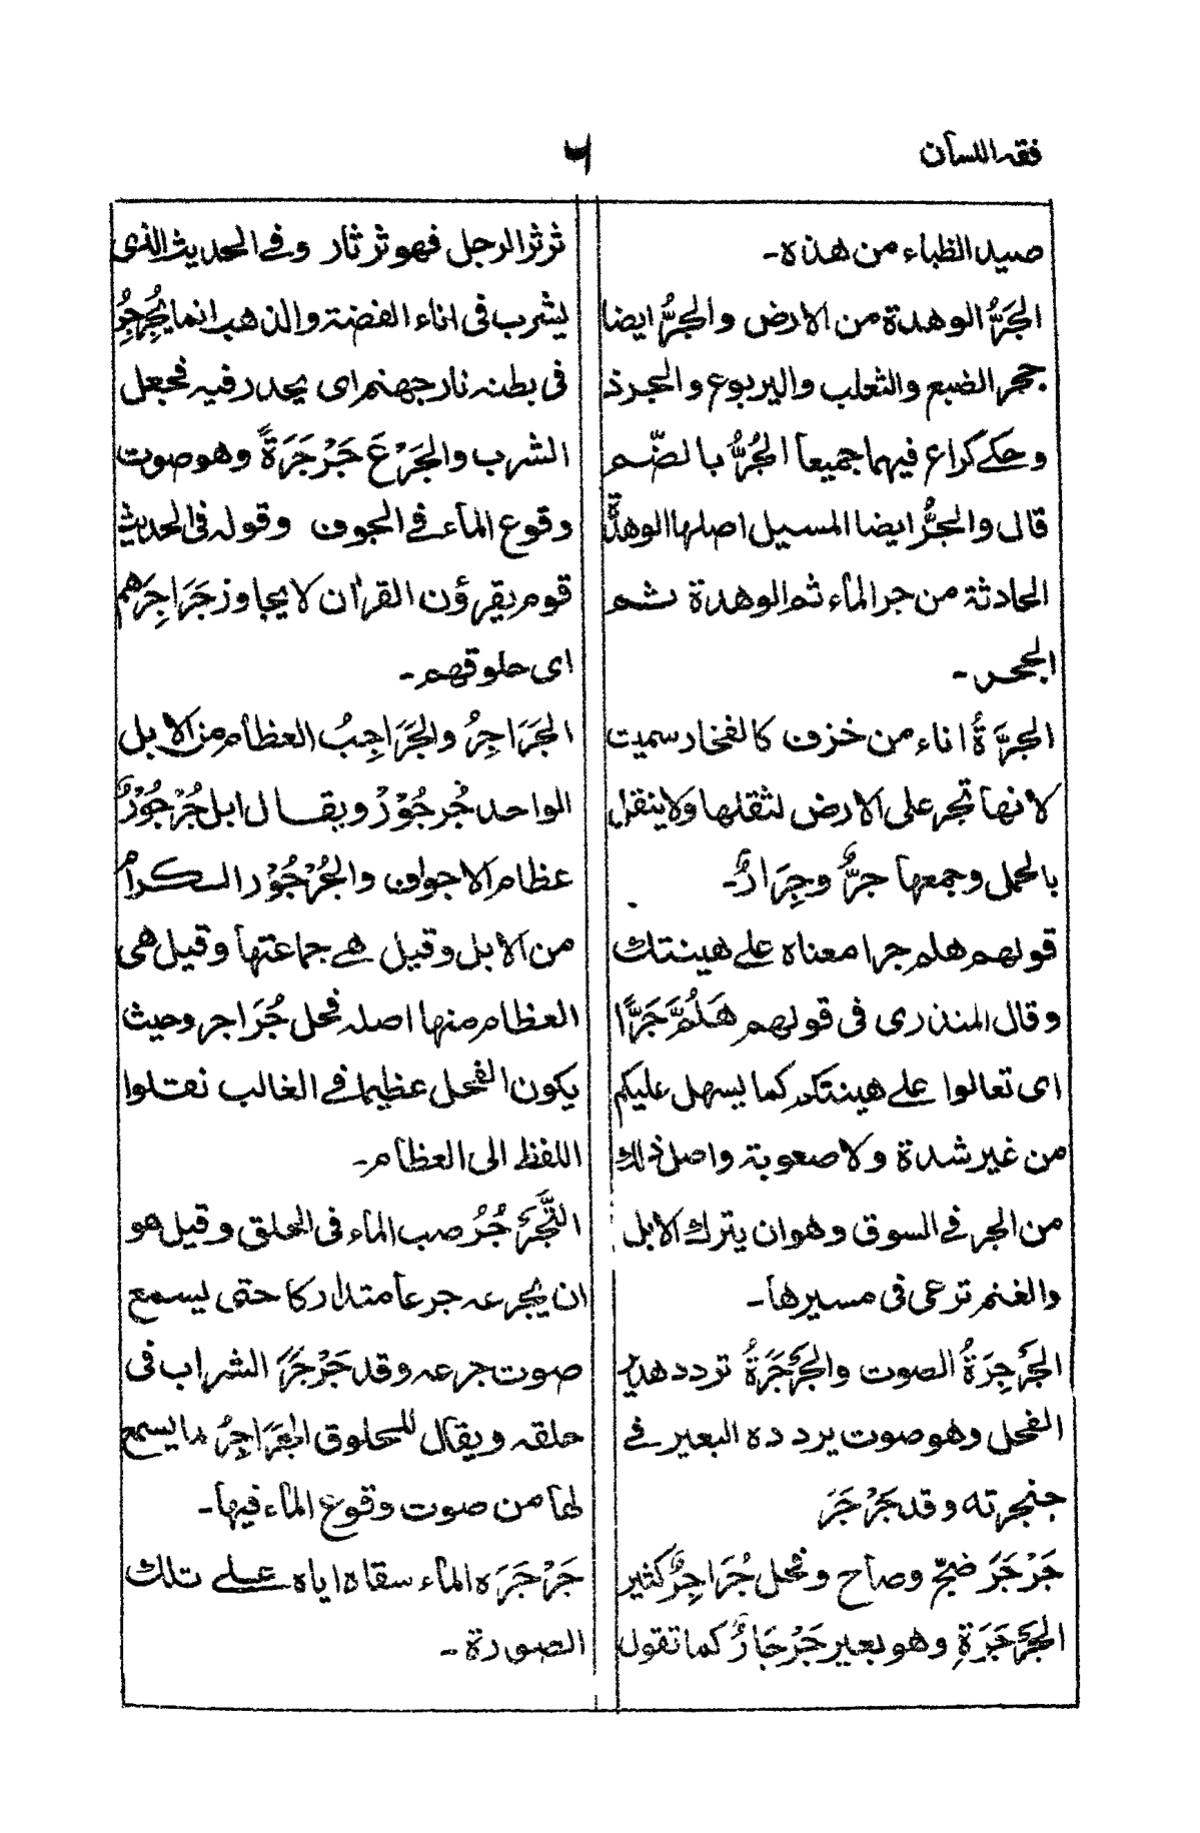 فقہ اللسان
٦
صید الظباء من هذه۔
الجَرُّ الوهدة من الارض والجرُّ ایضا
جحر الضبع والثعلب والیربوع والجرذ
وحکے کراع فیهما جمیعا الجُرُّ بالضّم
قال والجرُّ ایضا المسیل اصلها الوهدةٌ
الحادثۃ من جر المآء ثم الوهدة ثم
الجحر۔
الجرَّةُ اناء من خزف کالفخار سمیت
لانها تجر علی الارض لثقلها ولا ینقل
بالحمل وجمعها جرٌّ وجِرَارٌ۔
قولهم هلم جرا معناه علے هینتك
وقال المنذری فی قولهم هَلُمَّ جَرًّا
ای تعالوا علے هینتکم کما یسهل علیکم
من غیر شدة ولا صعوبۃ واصل ذلك
من الجر فے السوق وهو ان یترك الابل
والغنم ترعی فی مسیرها۔
الجَرْجِرَةُ الصوت والجَرْجَرَةُ تردد هدیر
الفحل وهو صوت یردده البعیر فے
حنجرته وقد جَرْجَرَ
جَرْجَرَ ضجّ وصاح وفحل جُرَاجِرٌ کثیر
الجَرْجَرَةِ وهو بعیر جَرْجَارٌ کما تقول
ثرثر الرجل فهو ثرثار وفے الحدیث الذی
یشرب فی اناء الفضۃ والذهب انما یُجَرْجِرُ
فی بطنه نار جهنم ای یحدر فیه فجعل
الشرب والجَرْعَ جَرْجَرَةً وهو صوت
وقوع المآء فے الجوف وقوله فی الحدیث
قوم یقرؤن القرآن لا یجاوز جَرَاجِرَهم
ای حلوقهم۔
الجَرَاجِرُ والجَرَاجِبُ العظام من الابل
الواحد جُرجُوْرٌ ویقال ابل جُرْجُوْرٌ
عظام الاجواف والجُرْجُوْر الکرام
من الابل وقیل هے جماعتها وقیل هی
العظام منها اصله فحل جُرَاجر وحیث
یکون الفحل عظیما فے الغالب نقلوا
اللفظ الی العظام۔
التَّجَرْجُرُ صب المآء فی الحلق وقیل هو
ان یجرعه جرعا متدارکا حتی یسمع
صوت جرعه وقد جَرْجَرَ الشراب فی
حلقه ویقال للحلوق الجَرَاجِرُ ما یسمع
لها من صوت وقوع المآء فیها۔
جَرْجَرَه المآء سقاه ایاه علے تلك
الصورة۔